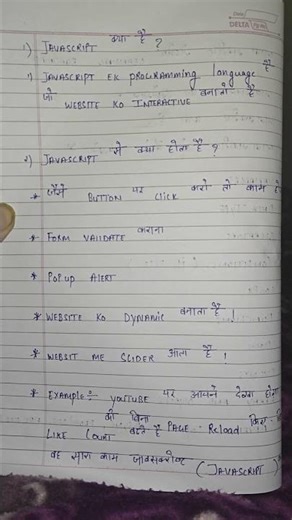 DELTA
१) JAVASCRIPT क्या है ?
१) JAVASCRIPT EK PROGRAMMING language है
जो WEBSITE KO INTERACTIVE बनाती है
२) JAVASCRIPT से क्या होता है ?
* जैसे BUTTON पर CLICK करो तो काम हो
* FORM VALIDATE कराना
* POPUP ALERT
* WEBSITE KO DYNAMIC बनाता है !
* WEBSIT ME SLIDER आता है !
* Example:- YOUTUBE पर आपने देखा होगा
की बिना PAGE Reload किए
LIKE COUNT बढ़ते है
वह सारा काम जावास्क्रीप्ट (JAVASCRIPT)